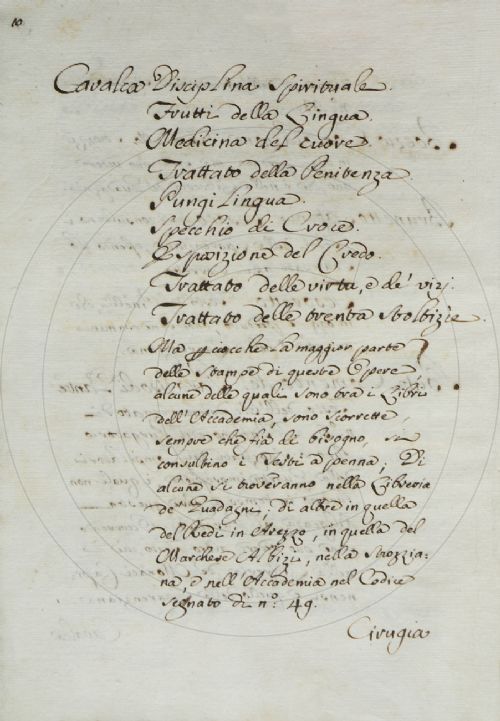 10
Cavalca Disciplina Spirituale.
Frutti della Lingua.
Medicina del cuore.
Trattato della Penitenza.
Pungi Lingua.
Specchio di Croce.
Esposizione del Credo.
Trattato delle virtu, e de' vizj.
Trattato delle trenta Stoltizie.
Ma perciocchè la maggior parte
delle stampe di queste Opere
alcune delle quali sono tra i Libri
dell'Accademia, sono scorrette,
sempre che fia di bisogno, si
consultino i Testi a penna; Di
alcune si troveranno nella Libreria
de' Guadagni; di altre in quella
del Redi in Arezzo, in quella del
Marchese Albizi, nella Strozzia:
na, e nell'Accademia nel Codice
segnato di n.º 49.
Cirugia